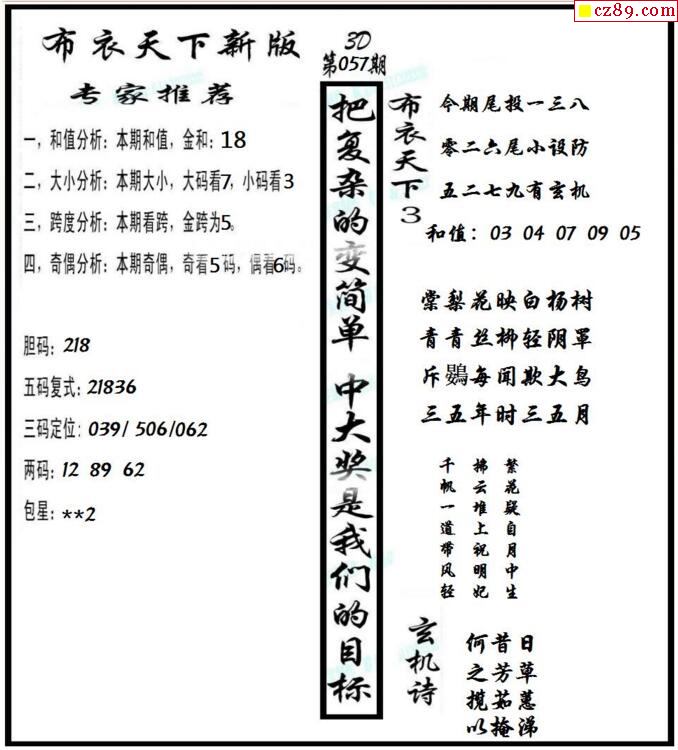 cz89.com
布衣天下新版
专家推荐
一，和值分析：本期和值，金和：18
二，大小分析：本期大小，大码看7，小码看3
三，跨度分析：本期看跨，金跨为5。
四，奇偶分析：本期奇偶，奇看5码，偶看6码。
胆码：218
五码复式：21836
三码定位：039/ 506/062
两码：12 89 62
包星：**2
3D
第057期
把复杂的变简单 中大奖是我们的目标
布衣天下3
今期尾投一三八
零二六尾小设防
五二七九有玄机
和值：03 04 07 09 05
棠梨花映白杨树
青青丝柳轻阴罩
斥鷃每闻欺大鸟
三五年时三五月
繁花疑自月中生
拂云堆上祝明妃
千帆一道带风轻
玄机诗
何昔日
之芳草
揽茹蕙
以掩涕